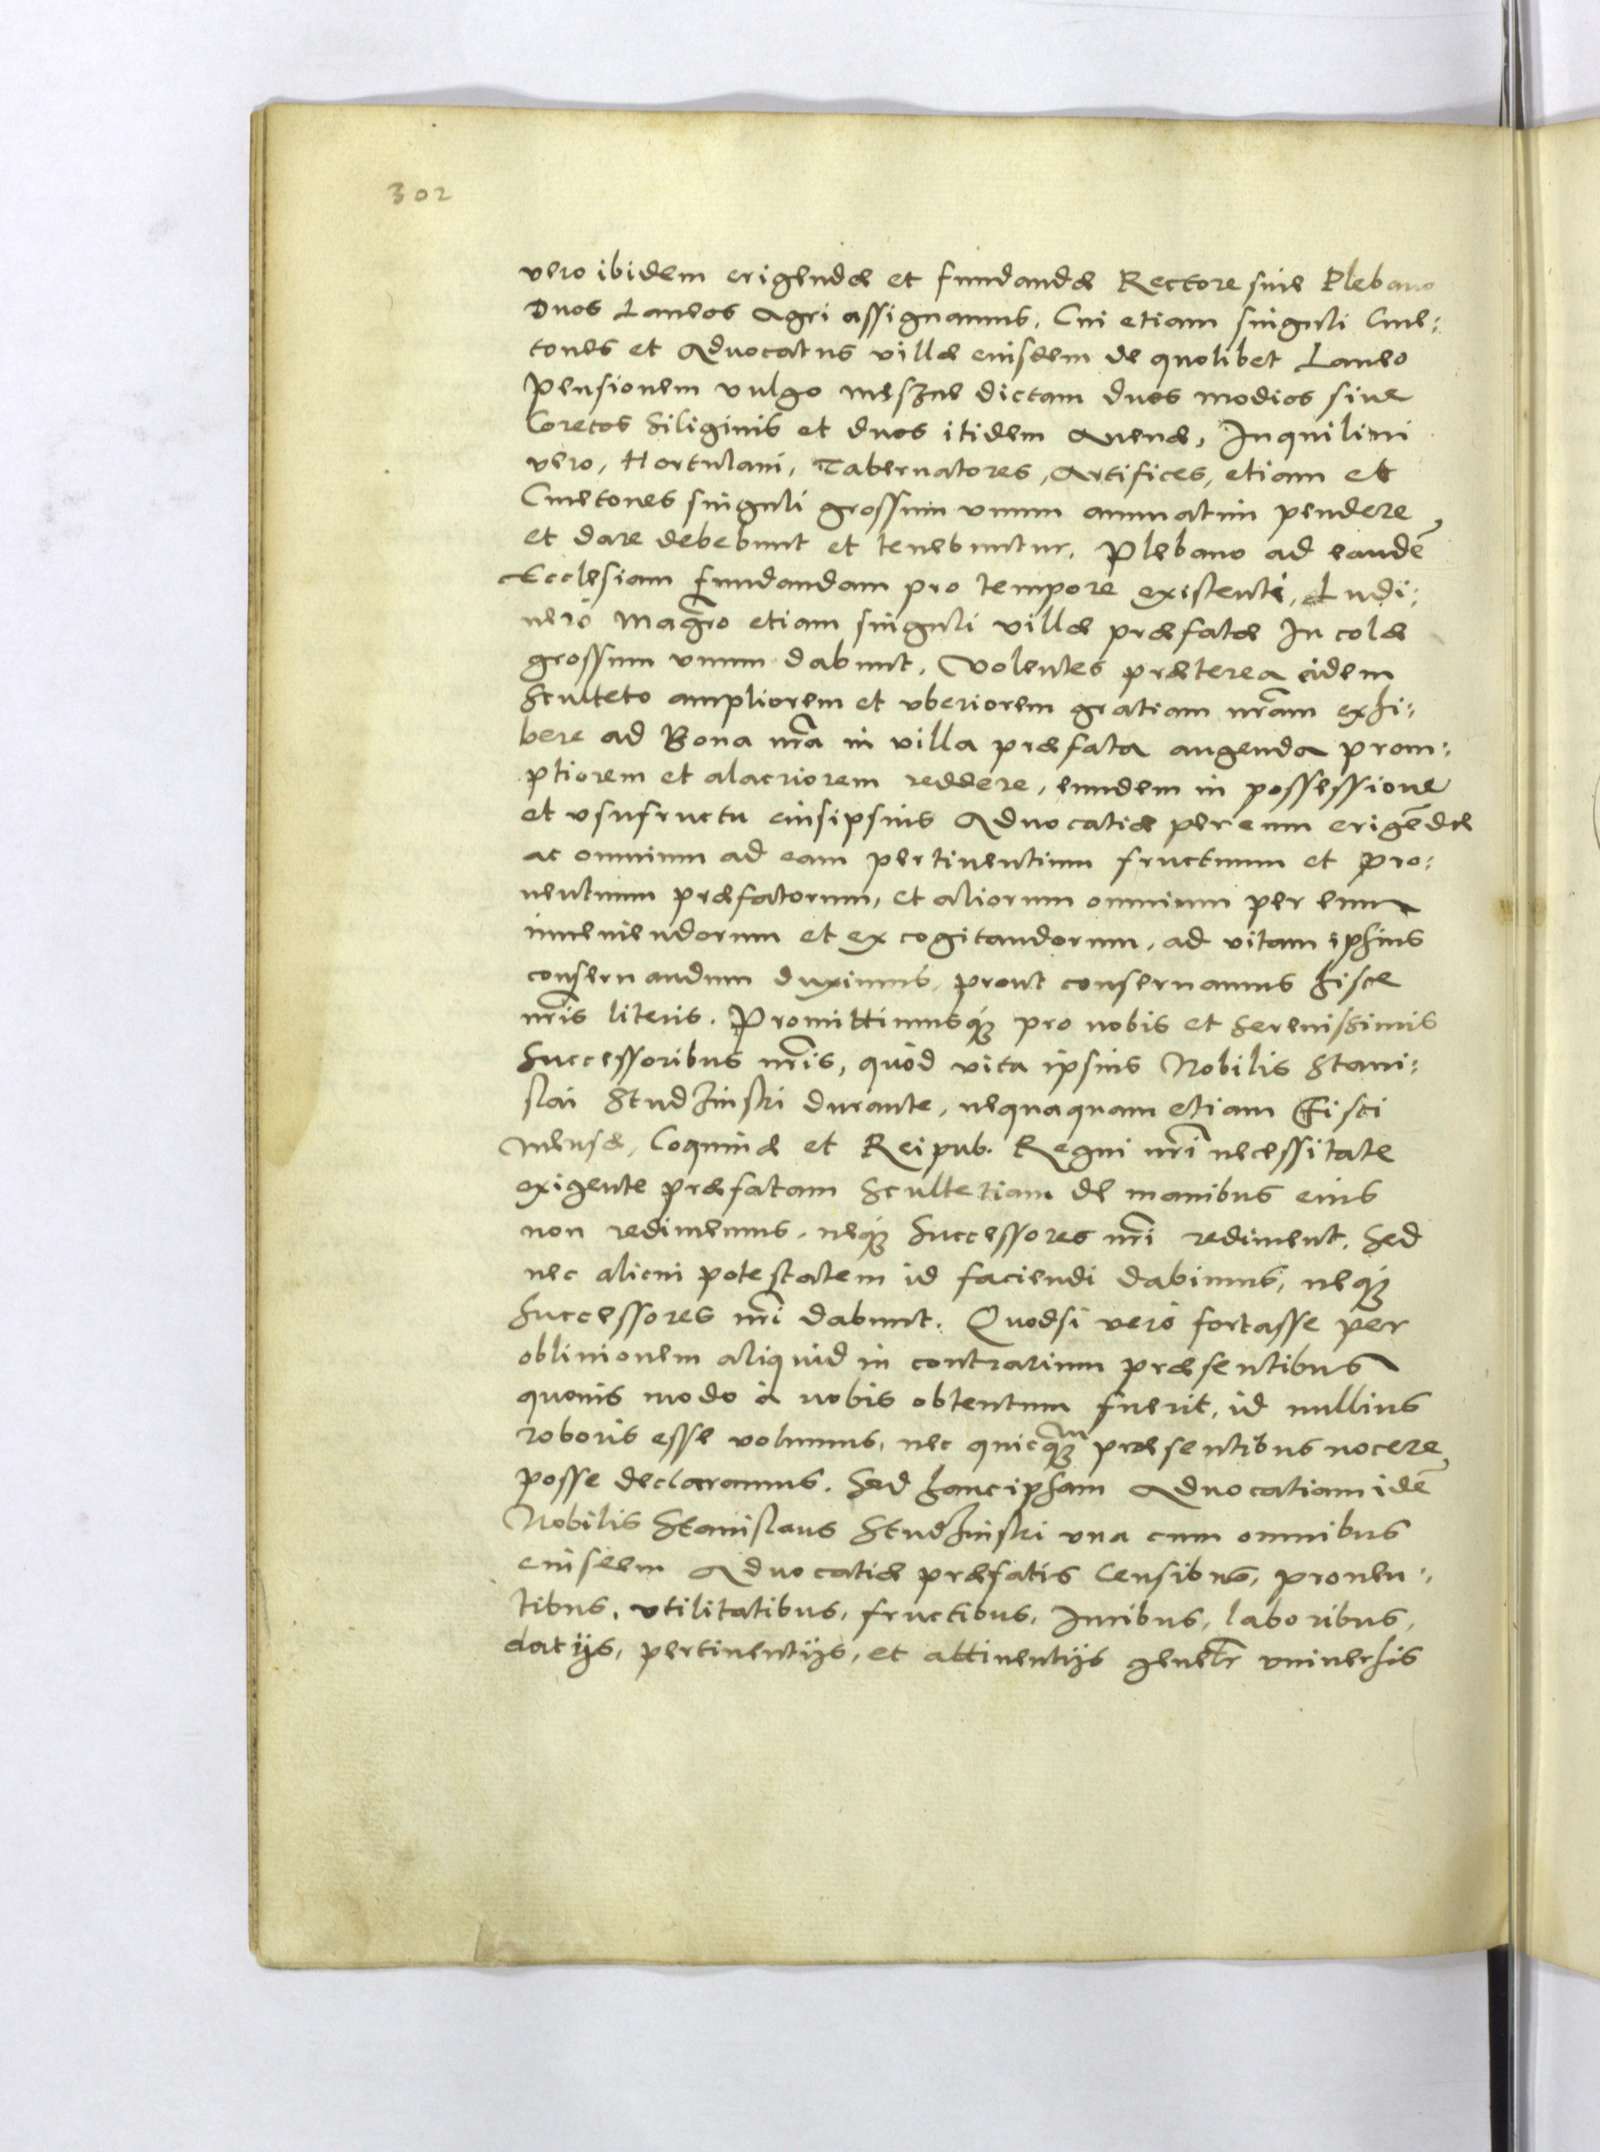 302
vero ibidem erigendæ et fundandæ Rectore siue Plebano
Duos Laneos Agri assignamus. Cui etiam singuli Cme:
tones et Aduocatus villæ eiusdem de quolibet Laneo
pensionem vulgo meszne dictam duos modios siue
Coretos Siliginis et duos itidem Auenæ, Inquilini
vero, Hortulani, Tabernatores, Artifices, etiam et
Cmetones singuli grossum vnum annuatim pendere
et dare debebunt et tenebuntur. Plebano ad eandē
Ecclesiam fundandam pro tempore existenti, Ludi:
uerò Magr̃o etiam singuli villæ præfatæ Incolæ
grossum vnum dabunt. Volentes præterea eidem
Sculteto ampliorem et vberiorem gratiam nr̃am exhi:
bere ad Bona nr̃a in villa præfata augenda prom:
ptiorem et alacriorem reddere, eundem in possessione
et vsufructu eiusipsius Aduocatiæ per eum erigēdæ
ac omnium ad eam pertinentium fructuum et pro:
uentuum præfatorum, et aliorum omnium per eum
inueniendorum et excogitandorum, ad vitam ipsius
conseruandum duximus, prout conseruamus hisce
nr̃is literis. Promittimusq́ʒ pro nobis et Serenissimis
Successoribus nr̃is, quòd vita ipsius Nobilis Stani:
slai Studzinski durante, nequaquam etiam Fisci
Mensæ, Coquinæ et Reipub. Regni nr̃i necessitate
exigente præfatam Scultetiam de manibus eius
non redimemus, neq́ʒ Successores nr̃i rediment. Sed
nec alicui potestatem id faciendi dabimus, neq́ʒ
Successores nr̃i dabunt. Quodsi verò fortasse per
obliuionem aliquid in contrarium præsentibus
quouis modo à nobis obtentum fuerit, id nullius
roboris esse volumus, nec quicq̃ʒ præsentibus nocere
posse declaramus. Sed hanc ipsam Aduocatiam idē
Nobilis Stanislaus Studzinski vna cum omnibus
eiusdem Aduocatiæ præfatis Censibus, prouen:
tibus, vtilitatibus, fructibus, Iuribus, laboribus,
datijs, pertinentijs, et attinentijs genelr̃ vniuersis